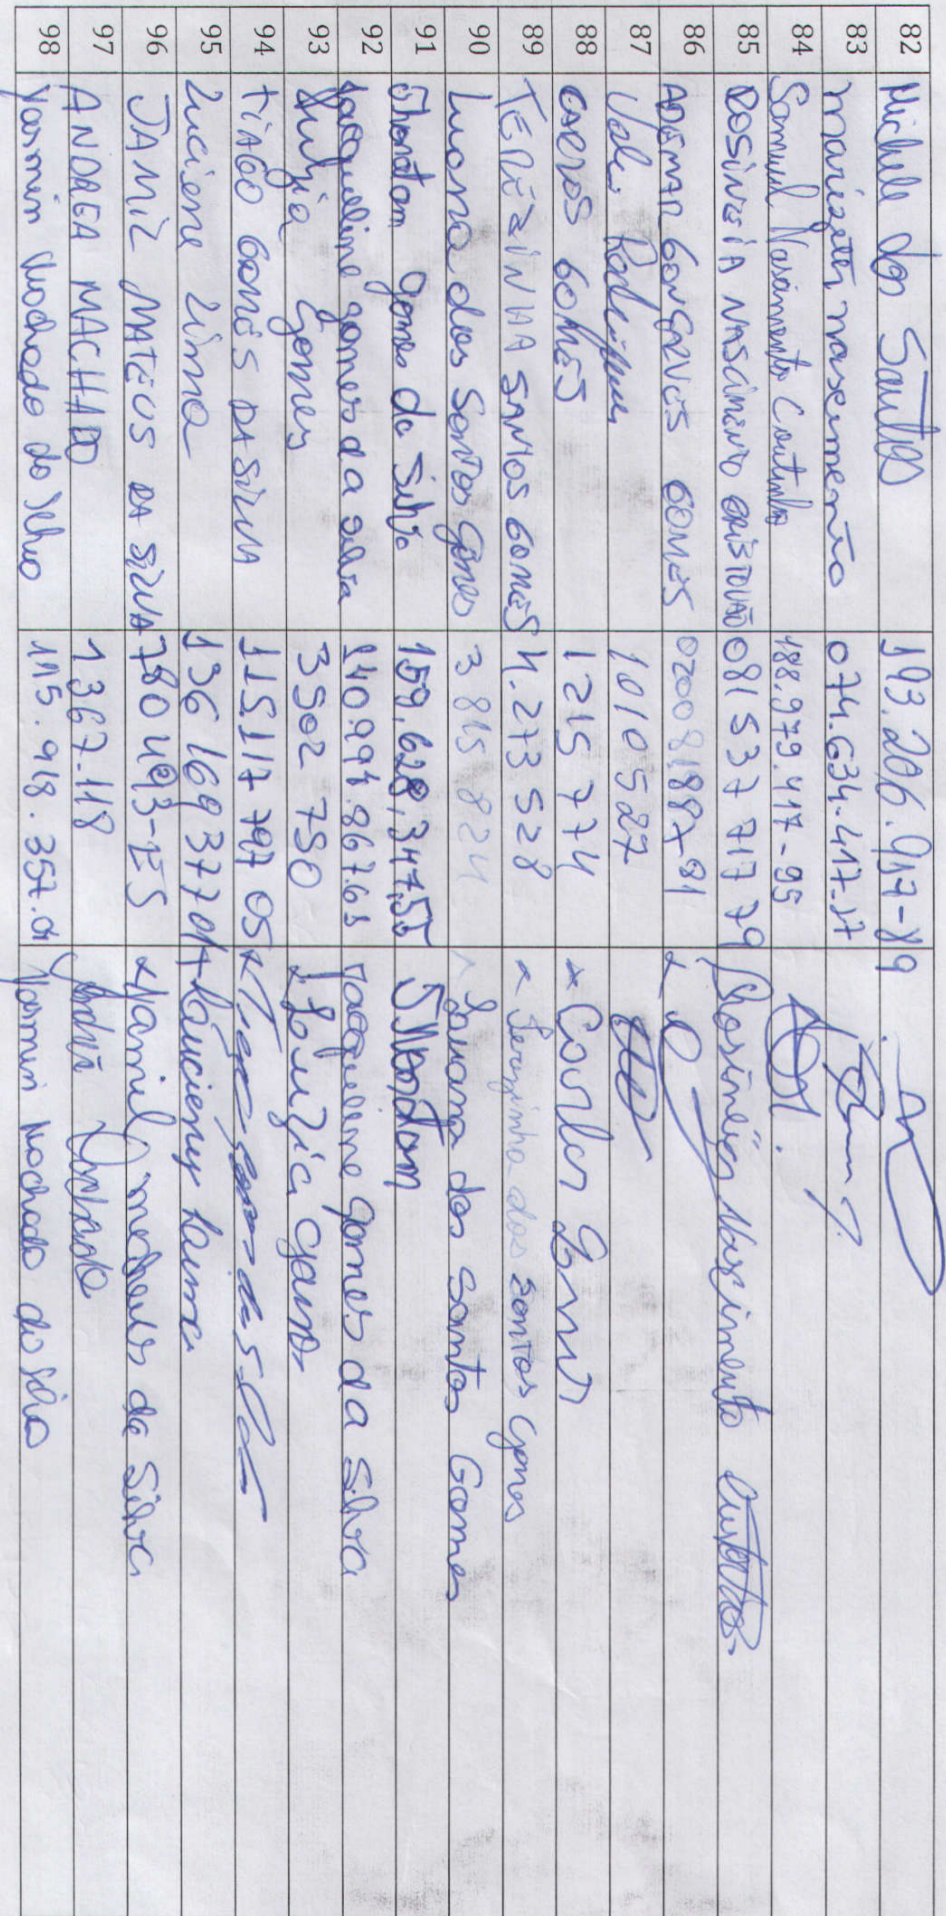 82 Michele dos Santos 193.206.917-89
83 marizete nascimento 074.634.417.17
84 Samuel Nascimento Coutinho 188.979.417-95
85 ROSINEIA NASCIMENTO CRISTOVÃO 081 537 717 79 Rosineia Nascimento
86 ADEMAR GONSALVES GOMES 0200081887-81
87 1010527
88 CARLOS GOMES 1215774 x Carlos Gomes
89 TEREZINHA SANTOS GOMES 4.273528 x Terezinha dos Santos Gomes
90 Luana dos Santos Gomes 3 815 824 Luana dos Santos Gomes
91 Gomes da Silva 159.628.347.55
92 Jaqueline gomes da silva 140.998.867.63 Jaqueline Gomes da Silva
93 Luzia Gomes 3502 790 x Luzia Gomes
94 TIAGO GOMES DA SILVA 115 117 797 05 x Tiago Gomes da Silva
95 Luciene Lima 136 169 377 01
96 JAMIL MATEUS DA SILVA 780493-ES x Jamil mateus da Silva
97 ANDREA MACHADO 1367-118
98 Yasmin Machado 115.918.357.01 Yasmin Machado